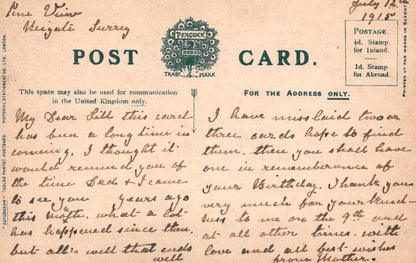 Pine View
Reigate Surrey
July 12th
1915
POST CARD.
PEACOCK
BRAND
TRADE MARK
POSTAGE.
½d. Stamp
for Inland.
1d. Stamp
for Abroad.
PRINTED AT THE WORKS IN SAXONY
PICTORIAL STATIONERY CO. LTD. LONDON.
"PEACOCK"
POSTCARD.
This space may also be used for communication
in the United Kingdom only.
FOR THE ADDRESS ONLY.
My Dear Sill this card
has been a long time in
coming, I thought it
would remind you of
the time Dad & I came
to see you years ago
this month. what a lot
has happened since then.
but all's well that ends
well
I have misslaid two or
three cards hope to find
them. then you shall have
one in rememberance of
your Birthday. Thank you
very much for your kind-
ness to me on the 9th and
at all other times. with
love and all best wishes
from Mother.